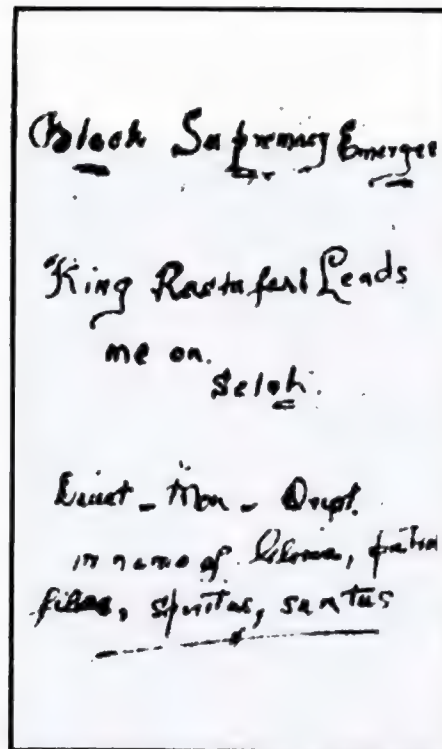 Black Supremacy Emerges
"King Rastafari Leads
me on.
Selah.
in name of Gloria, patria
filios, spiritus, santus